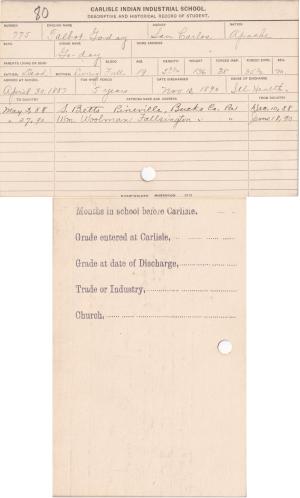 80
CARLISLE INDIAN INDUSTRIAL SCHOOL.
DESCRIPTIVE AND HISTORICAL RECORD OF STUDENT.
NUMBER ENGLISH NAME AGENCY NATION
775 Talbot Goday San Carlos Apache
BAND INDIAN NAME HOME ADDRESS
Goday
PARENTS LIVING OR DEAD BLOOD AGE HEIGHT WEIGHT FORCED INSP. FORCED EXPR. SEX
FATHER Dead MOTHER Living Full 19
ARRIVED AT SCHOOL FOR WHAT PERIOD DATE DISCHARGED CAUSE OF DISCHARGE
April 30, 1887 5 years Nov 12, 1890 Ill Health
TO COUNTRY PATRONS NAME AND ADDRESS FROM COUNTRY
May 3, 88 S. Betts Pineville, Bucks Co. Pa Dec. 10, 88
" 27, 90 Wm Woolman Fallsington " " June 18, 90
Months in school before Carlisle,
Grade entered at Carlisle,
Grade at date of Discharge,
Trade or Industry,
Church,